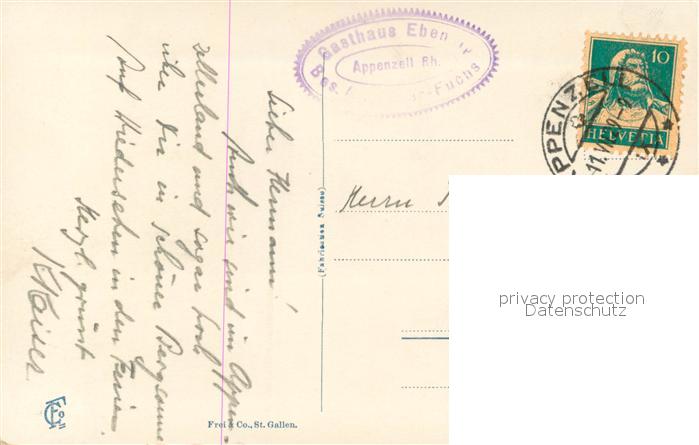 Gasthaus Eben
Appenzell Rh.
Bes. -Fuchs
10
HELVETIA
APPENZELL
11.VI
Lieber Hermann!
Auch wir sind im Appen-
zellerland und sogar hoch
über Dir in schöner Bergsonne
Auf Wiedersehen in den Ferien
Herzl. grüsst
K Kaiser
Herrn
(Fabrication Suisse)
Frei & Co., St. Gallen.
privacy protection
Datenschutz